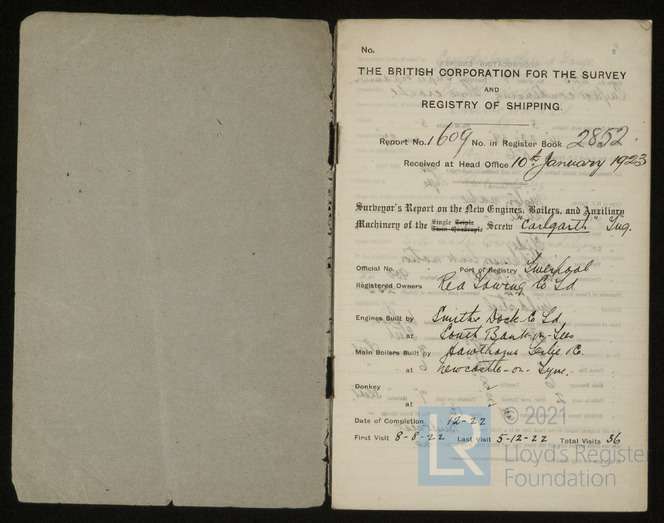 No.
THE BRITISH CORPORATION FOR THE SURVEY
AND
REGISTRY OF SHIPPING.
Report No. 1609 No. in Register Book 2852.
Received at Head Office 10th January 1923
Surveyor's Report on the New Engines, Boilers, and Auxiliary
Machinery of the Single Triple Twin Quadruple Screw "Carlgarth" Tug.
Official No. Port of Registry Liverpool
Registered Owners Rea Towing Co Ld
Engines Built by Smiths Dock Co Ld.
at South Bank-on-Tees
Main Boilers Built by Hawthorns Leslie
at Newcastle-on-Tyne.
Donkey
at
Date of Completion 12-22
First Visit 8-8-22 Last Visit 5-12-22 Total Visits 36
LR © 2021
Lloyd's Register
Foundation